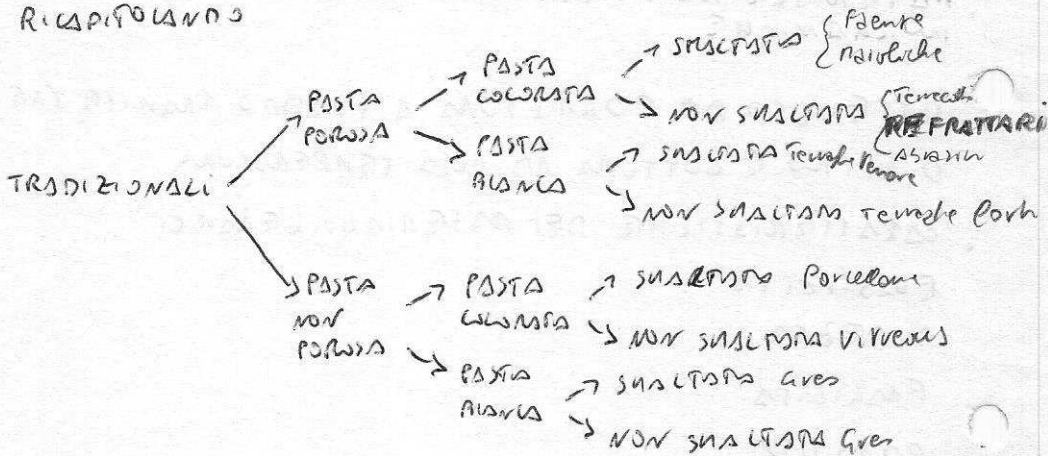 RICAPITOLANDO
PASTA COLORATA
SMALTATA Faenze
maioliche
NON SMALTATA Terrecotte
REFRATTARI
Abrasivi
PASTA POROSA
PASTA BIANCA
SMALTATA Terraglie tenere
NON SMALTATA Terraglie forti
TRADIZIONALI
PASTA NON POROSA
PASTA COLORATA
SMALTATA Porcellane
NON SMALTATA Vitreous
PASTA BIANCA
SMALTATA Gres
NON SMALTATA Gres